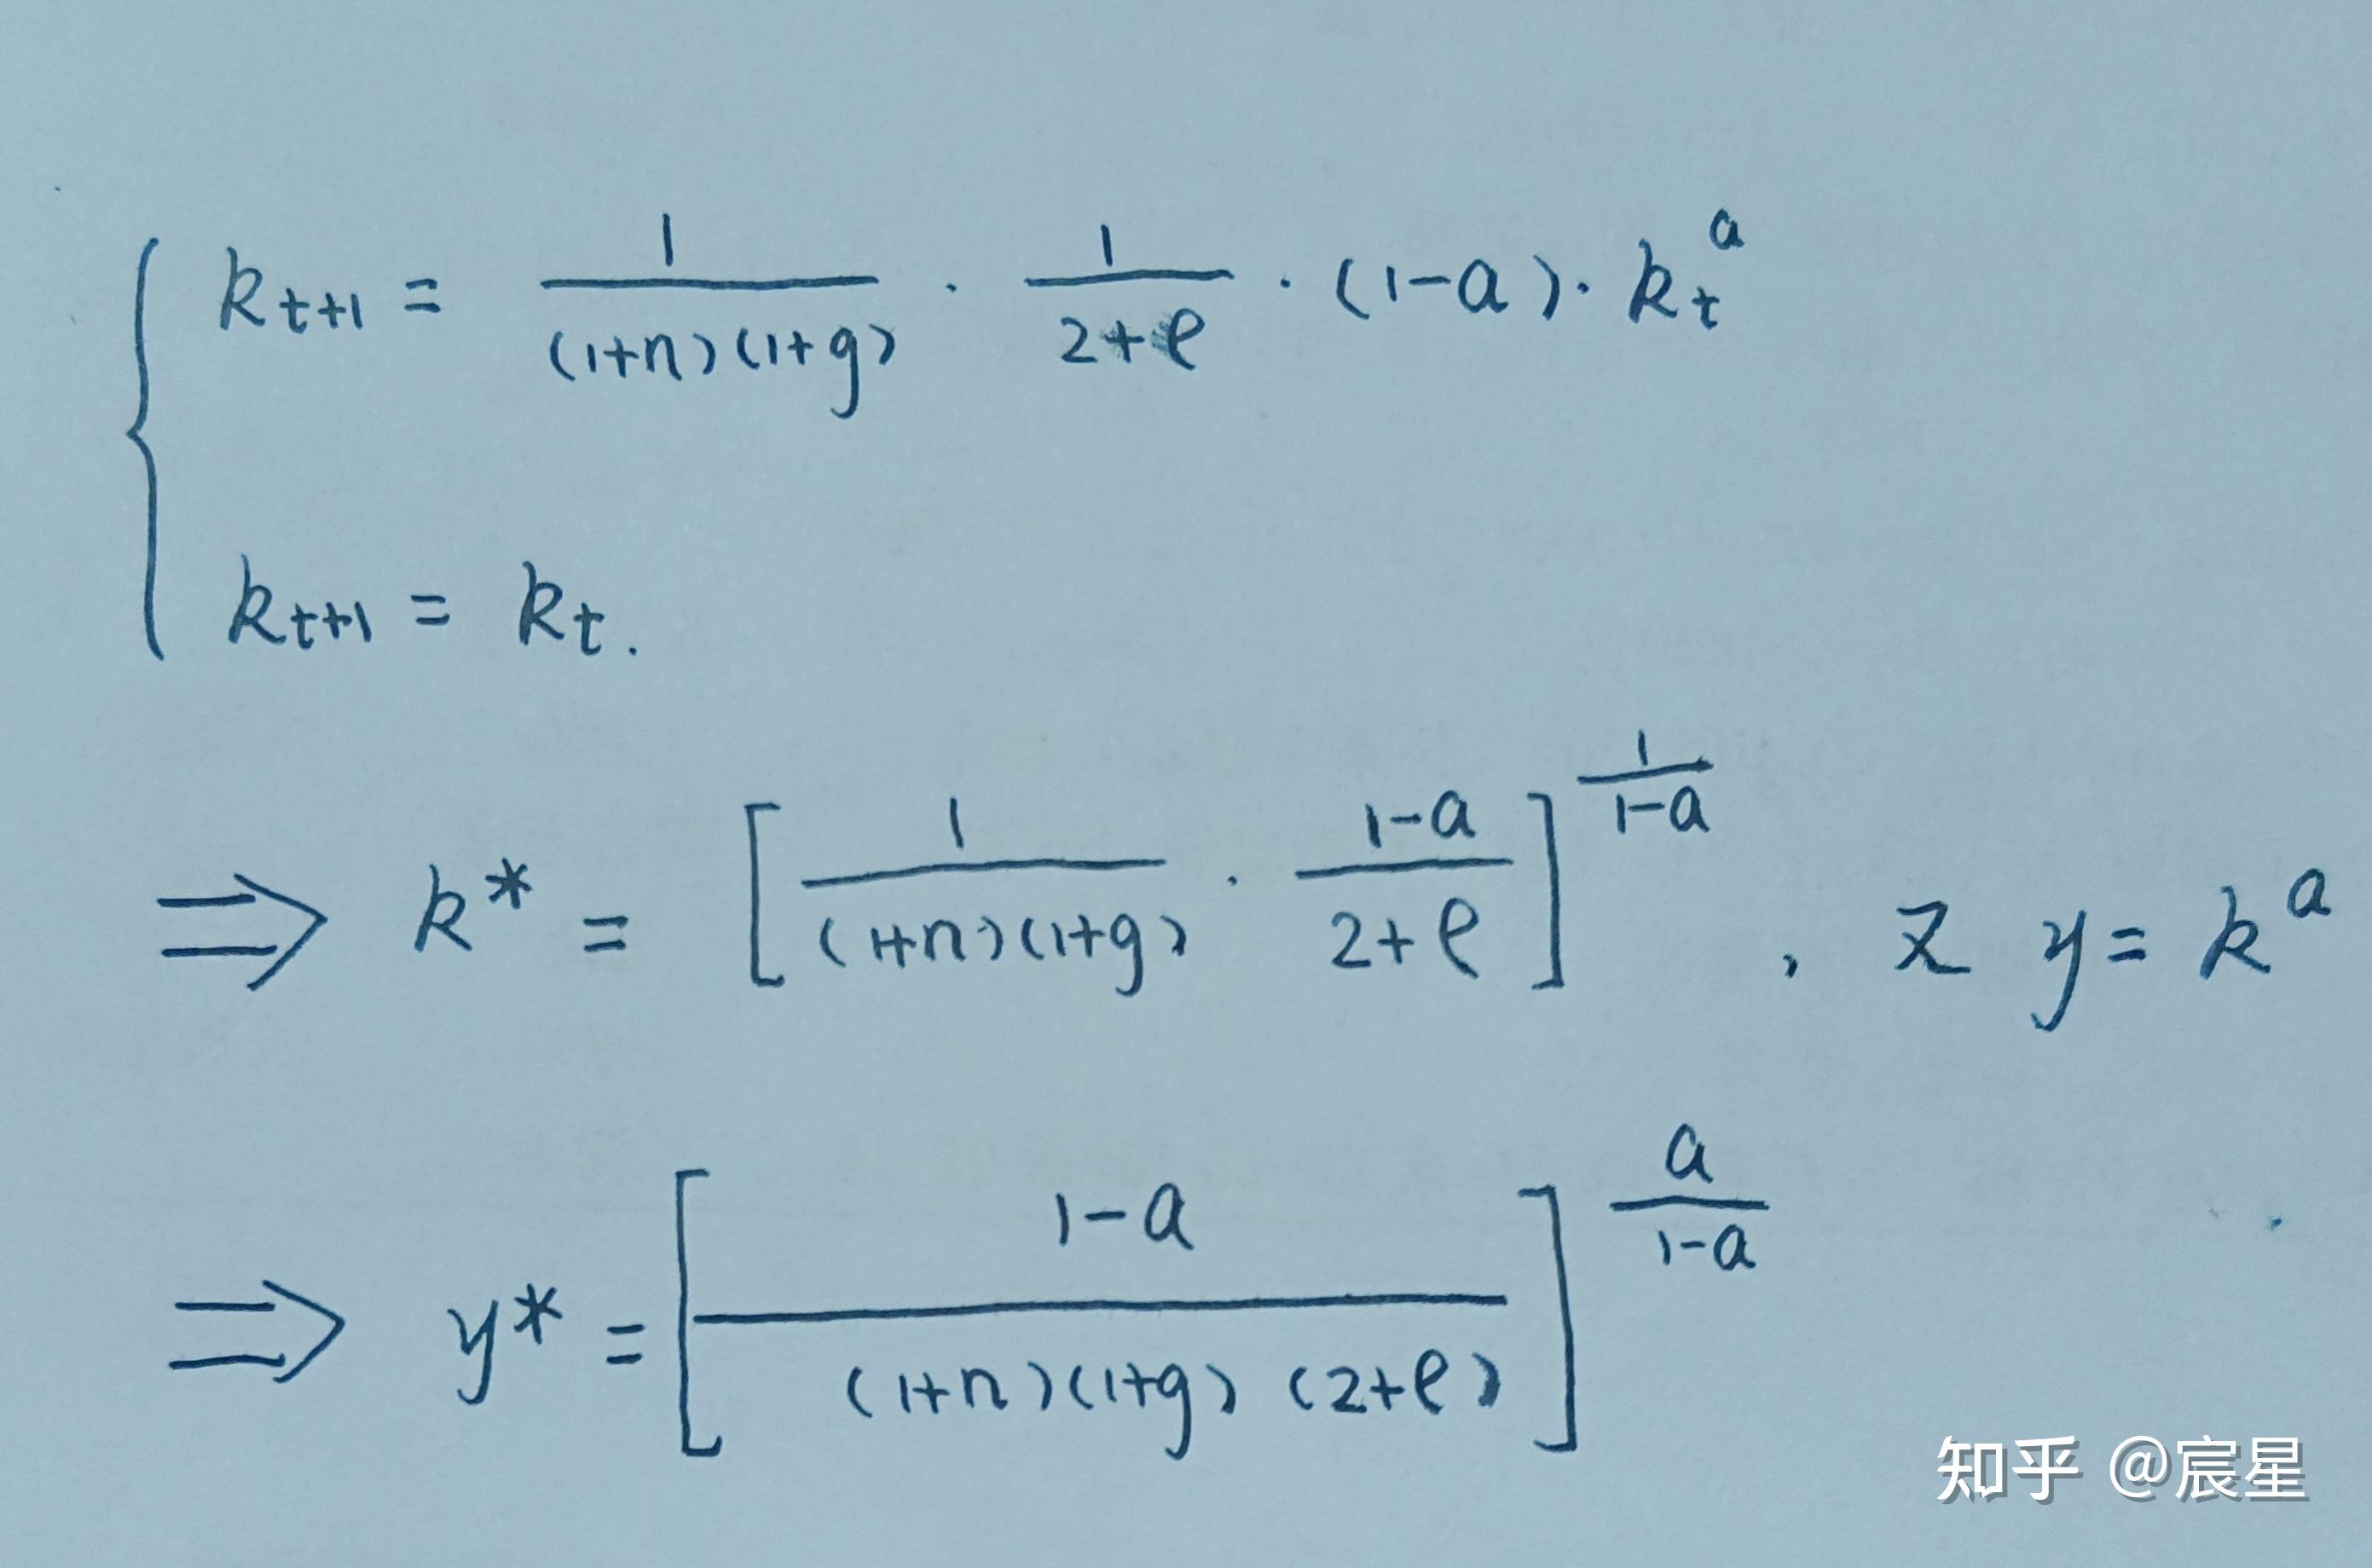 k_{t+1} = \frac{1}{(1+n)(1+g)} · \frac{1}{2+ρ} · (1-a) · k_t^a
k_{t+1} = k_t.
⇒ k* = [\frac{1}{(1+n)(1+g)} · \frac{1-a}{2+ρ}]^{\frac{1}{1-a}}, 又 y = k^a
⇒ y* = [\frac{1-a}{(1+n)(1+g)(2+ρ)}]^{\frac{a}{1-a}}
知乎 @宸星